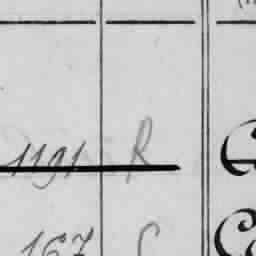 1191 R
167 C